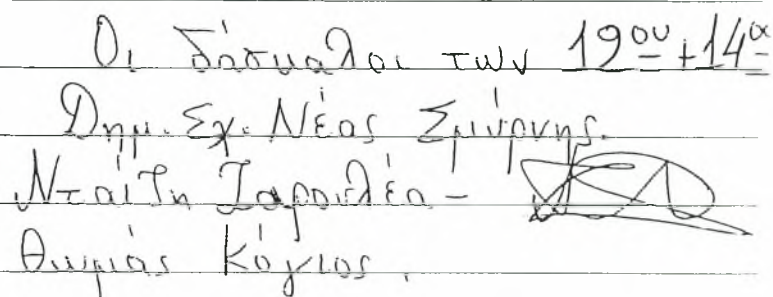 Οι δάσκαλοι των 19ου + 14α
Δημ. Σχ. Νέας Σμύρνης.
Νταίζη Ζαρουλέα -
Θωμάς Κόγιος.